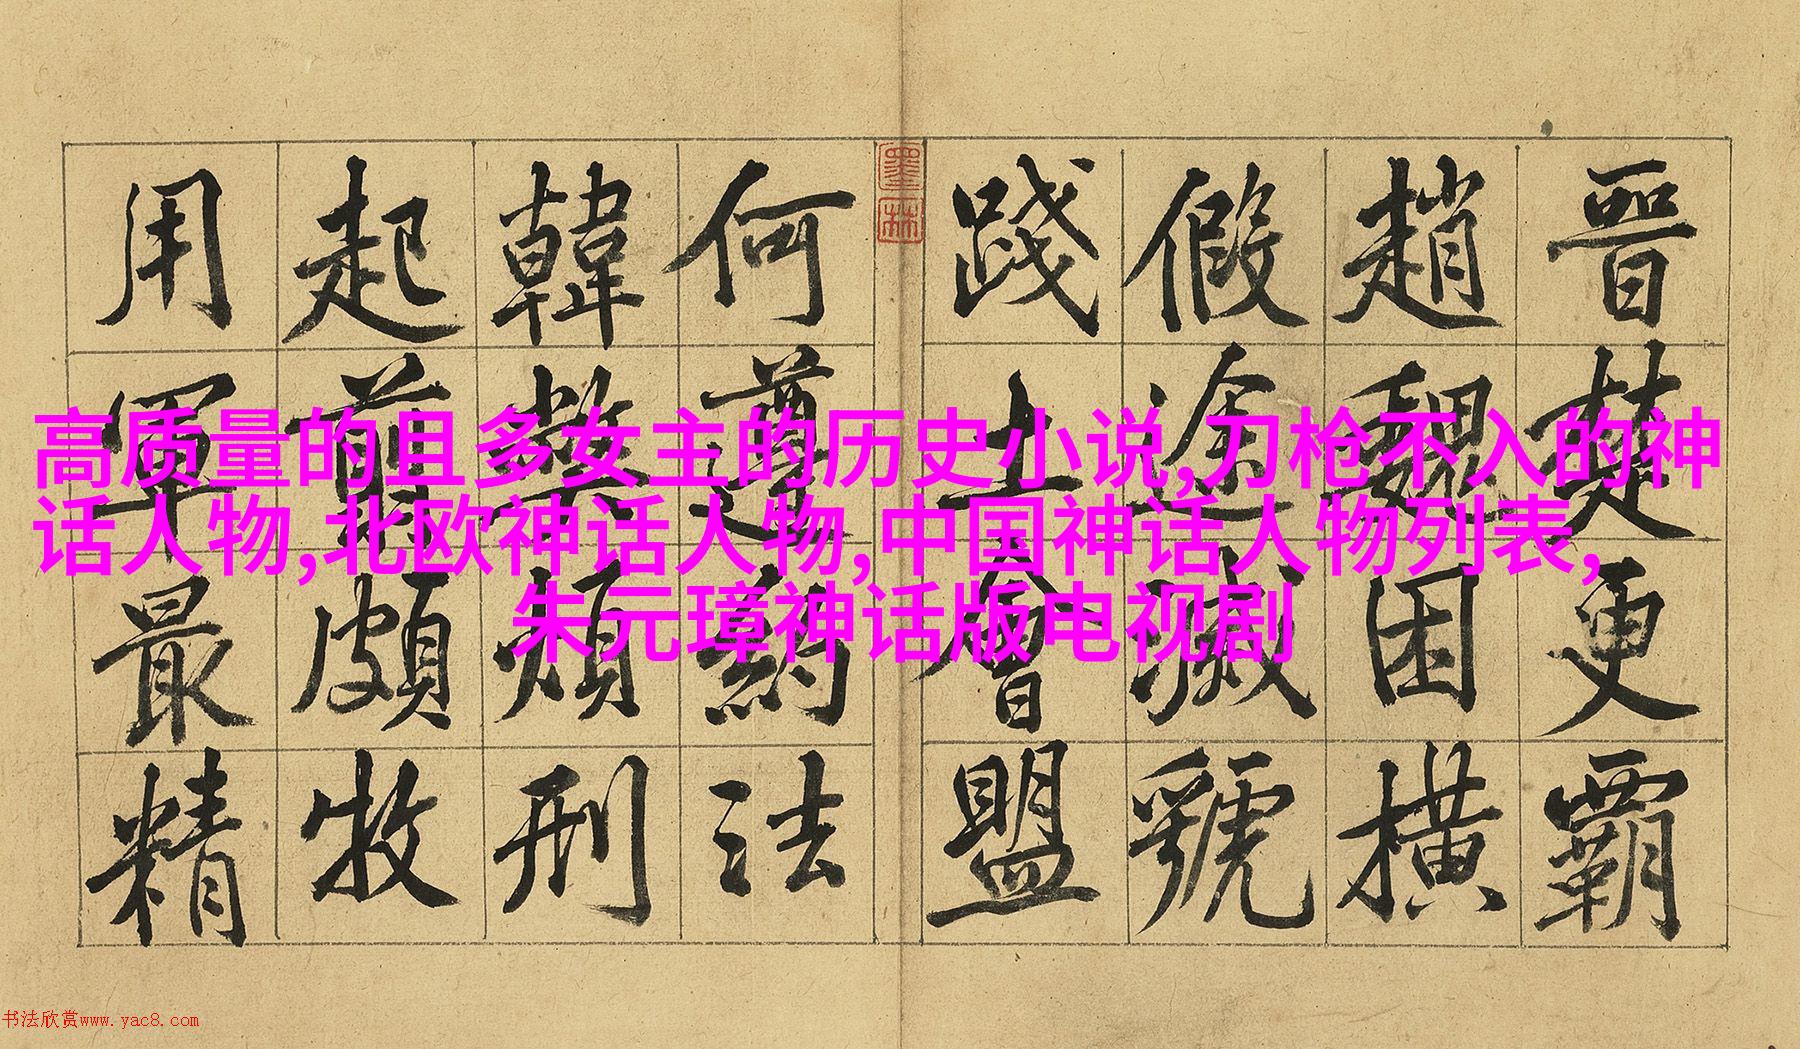 晉楚更霸
趙魏困橫
假途滅虢
踐土會盟
墨林
何遵約法
韓弊煩刑
起翦頗牧
用軍最精
高质量的且多女主的历史小说,刀枪不入的神
话人物,北欧神话人物,中国神话人物列表,
朱元璋神话版电视剧
书法欣赏www.yac8.com